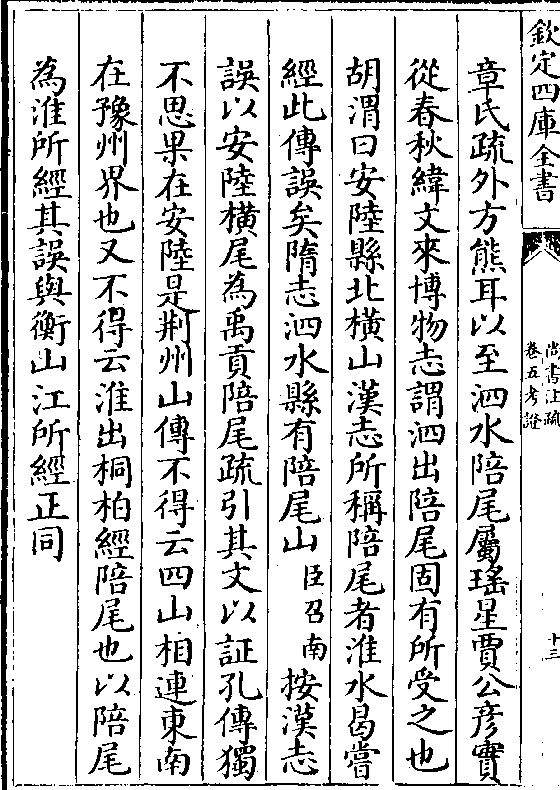 欽定四庫全書
尚書注疏
卷五考證
十三
章氏疏外方熊耳以至泗水陪尾屬瑤星賈公彥實
從春秋緯文來博物志謂泗出陪尾固有所受之也
胡渭曰安陸縣北橫山漢志所稱陪尾者淮水曷嘗
經此傳誤矣隋志泗水縣有陪尾山臣召南按漢志
誤以安陸橫尾為禹貢陪尾疏引其文以証孔傳獨
不思果在安陸是荆州山傳不得云四山相連東南
在豫州界也又不得云淮出桐柏經陪尾也以陪尾
為淮所經其誤與衡山江所經正同